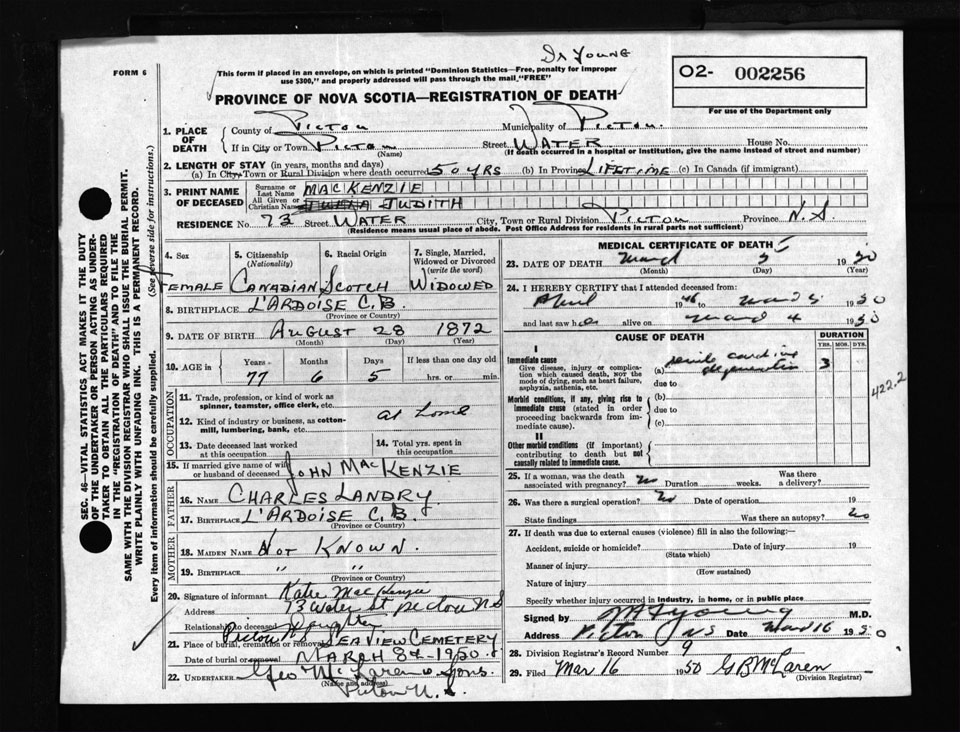 Dr Young
FORM 6
This form if placed in an envelope, on which is printed "Dominion Statistics—Free, penalty for improper
use $300," and properly addressed will pass through the mail "FREE"
O2- 002256
For use of the Department only
PROVINCE OF NOVA SCOTIA—REGISTRATION OF DEATH
1. PLACE OF DEATH
County of Pictou Municipality of Pictou.
If in City or Town Pictou (Name) Street WATER House No.
(If death occurred in a hospital or institution, give the name instead of street and number)
2. LENGTH OF STAY (in years, months and days)
(a) In City, Town or Rural Division where death occurred 50 YRS (b) In Province LIFETIME (c) In Canada (if immigrant)
3. PRINT NAME OF DECEASED
Surname or Last Name MACKENZIE
All Given or Christian Names JUDITH
RESIDENCE No. 73 Street WATER City, Town or Rural Division PICTOU Province N.S.
(Residence means usual place of abode. Post Office Address for residents in rural parts not sufficient)
4. Sex
5. Citizenship (Nationality)
6. Racial Origin
7. Single, Married, Widowed or Divorced (write the word)
FEMALE CANADIAN SCOTCH WIDOWED
8. BIRTHPLACE L'ARDOISE C.B.
(Province or Country)
9. DATE OF BIRTH AUGUST 28 1872
(Month) (Day) (Year)
10. AGE in Years Months Days If less than one day old
77 6 5 hrs. or min.
OCCUPATION
11. Trade, profession, or kind of work as
spinner, teamster, office clerk, etc.
12. Kind of industry or business, as cotton-
mill, lumbering, bank, etc. at home
13. Date deceased last worked at this occupation
14. Total yrs. spent in this occupation
15. If married give name of wife
or husband of deceased JOHN MACKENZIE
FATHER
16. NAME CHARLES LANDRY
17. BIRTHPLACE L'ARDOISE C.B.
(Province or Country)
MOTHER
18. MAIDEN NAME NOT KNOWN.
19. BIRTHPLACE " "
(Province or Country)
20. Signature of informant Katie MacKenzie
Address 73 Water St Pictou N S
Relationship to deceased Daughter
Pictou NS
21. Place of burial, cremation or removal SEAVIEW CEMETERY
Date of burial or removal MARCH 8th 1950.
22. UNDERTAKER Geo McLaren & Sons.
(Name and address)
Pictou N. S.
MEDICAL CERTIFICATE OF DEATH
23. DATE OF DEATH March 5 1950
(Month) (Day) (Year)
24. I HEREBY CERTIFY that I attended deceased from:
April 1946 to March 5 1950
and last saw her alive on March 4 1950
CAUSE OF DEATH
DURATION
YRS. MOS. DYS.
I
Immediate cause
Give disease, injury or complica-
tion which caused death, NOT the
mode of dying, such as heart failure,
asphyxia, asthenia, etc.
(a) senile cardiac
degeneration 3
due to
422.2
Morbid conditions, if any, giving rise to
immediate cause (stated in order
proceeding backwards from im-
mediate cause).
(b)
due to
(c)
II
Other morbid conditions (if important)
contributing to death but not
causally related to immediate cause.
25. If a woman, was the death
associated with pregnancy? No Duration weeks. Was there a delivery?
26. Was there a surgical operation? No Date of operation 19
State findings Was there an autopsy? No
27. If death was due to external causes (violence) fill in also the following:—
Accident, suicide or homicide? Date of injury 19
(State which)
Manner of injury
(How sustained)
Nature of injury
Specify whether injury occurred in industry, in home, or in public place
Signed by Young M.D.
Address Pictou NS Date March 16 1950
28. Division Registrar's Record Number 9
29. Filed Mar 16 1950 G B McLaren
(Division Registrar)
SEC. 46—VITAL STATISTICS ACT MAKES IT THE DUTY
OF THE UNDERTAKER OR PERSON ACTING AS UNDER-
TAKER TO OBTAIN ALL THE PARTICULARS REQUIRED
IN THE "REGISTRATION OF DEATH" AND TO FILE THE
SAME WITH THE DIVISION REGISTRAR WHO SHALL ISSUE THE BURIAL PERMIT.
WRITE PLAINLY WITH UNFADING INK. THIS IS A PERMANENT RECORD.
Every item of information should be carefully supplied. (See reverse side for instructions.)